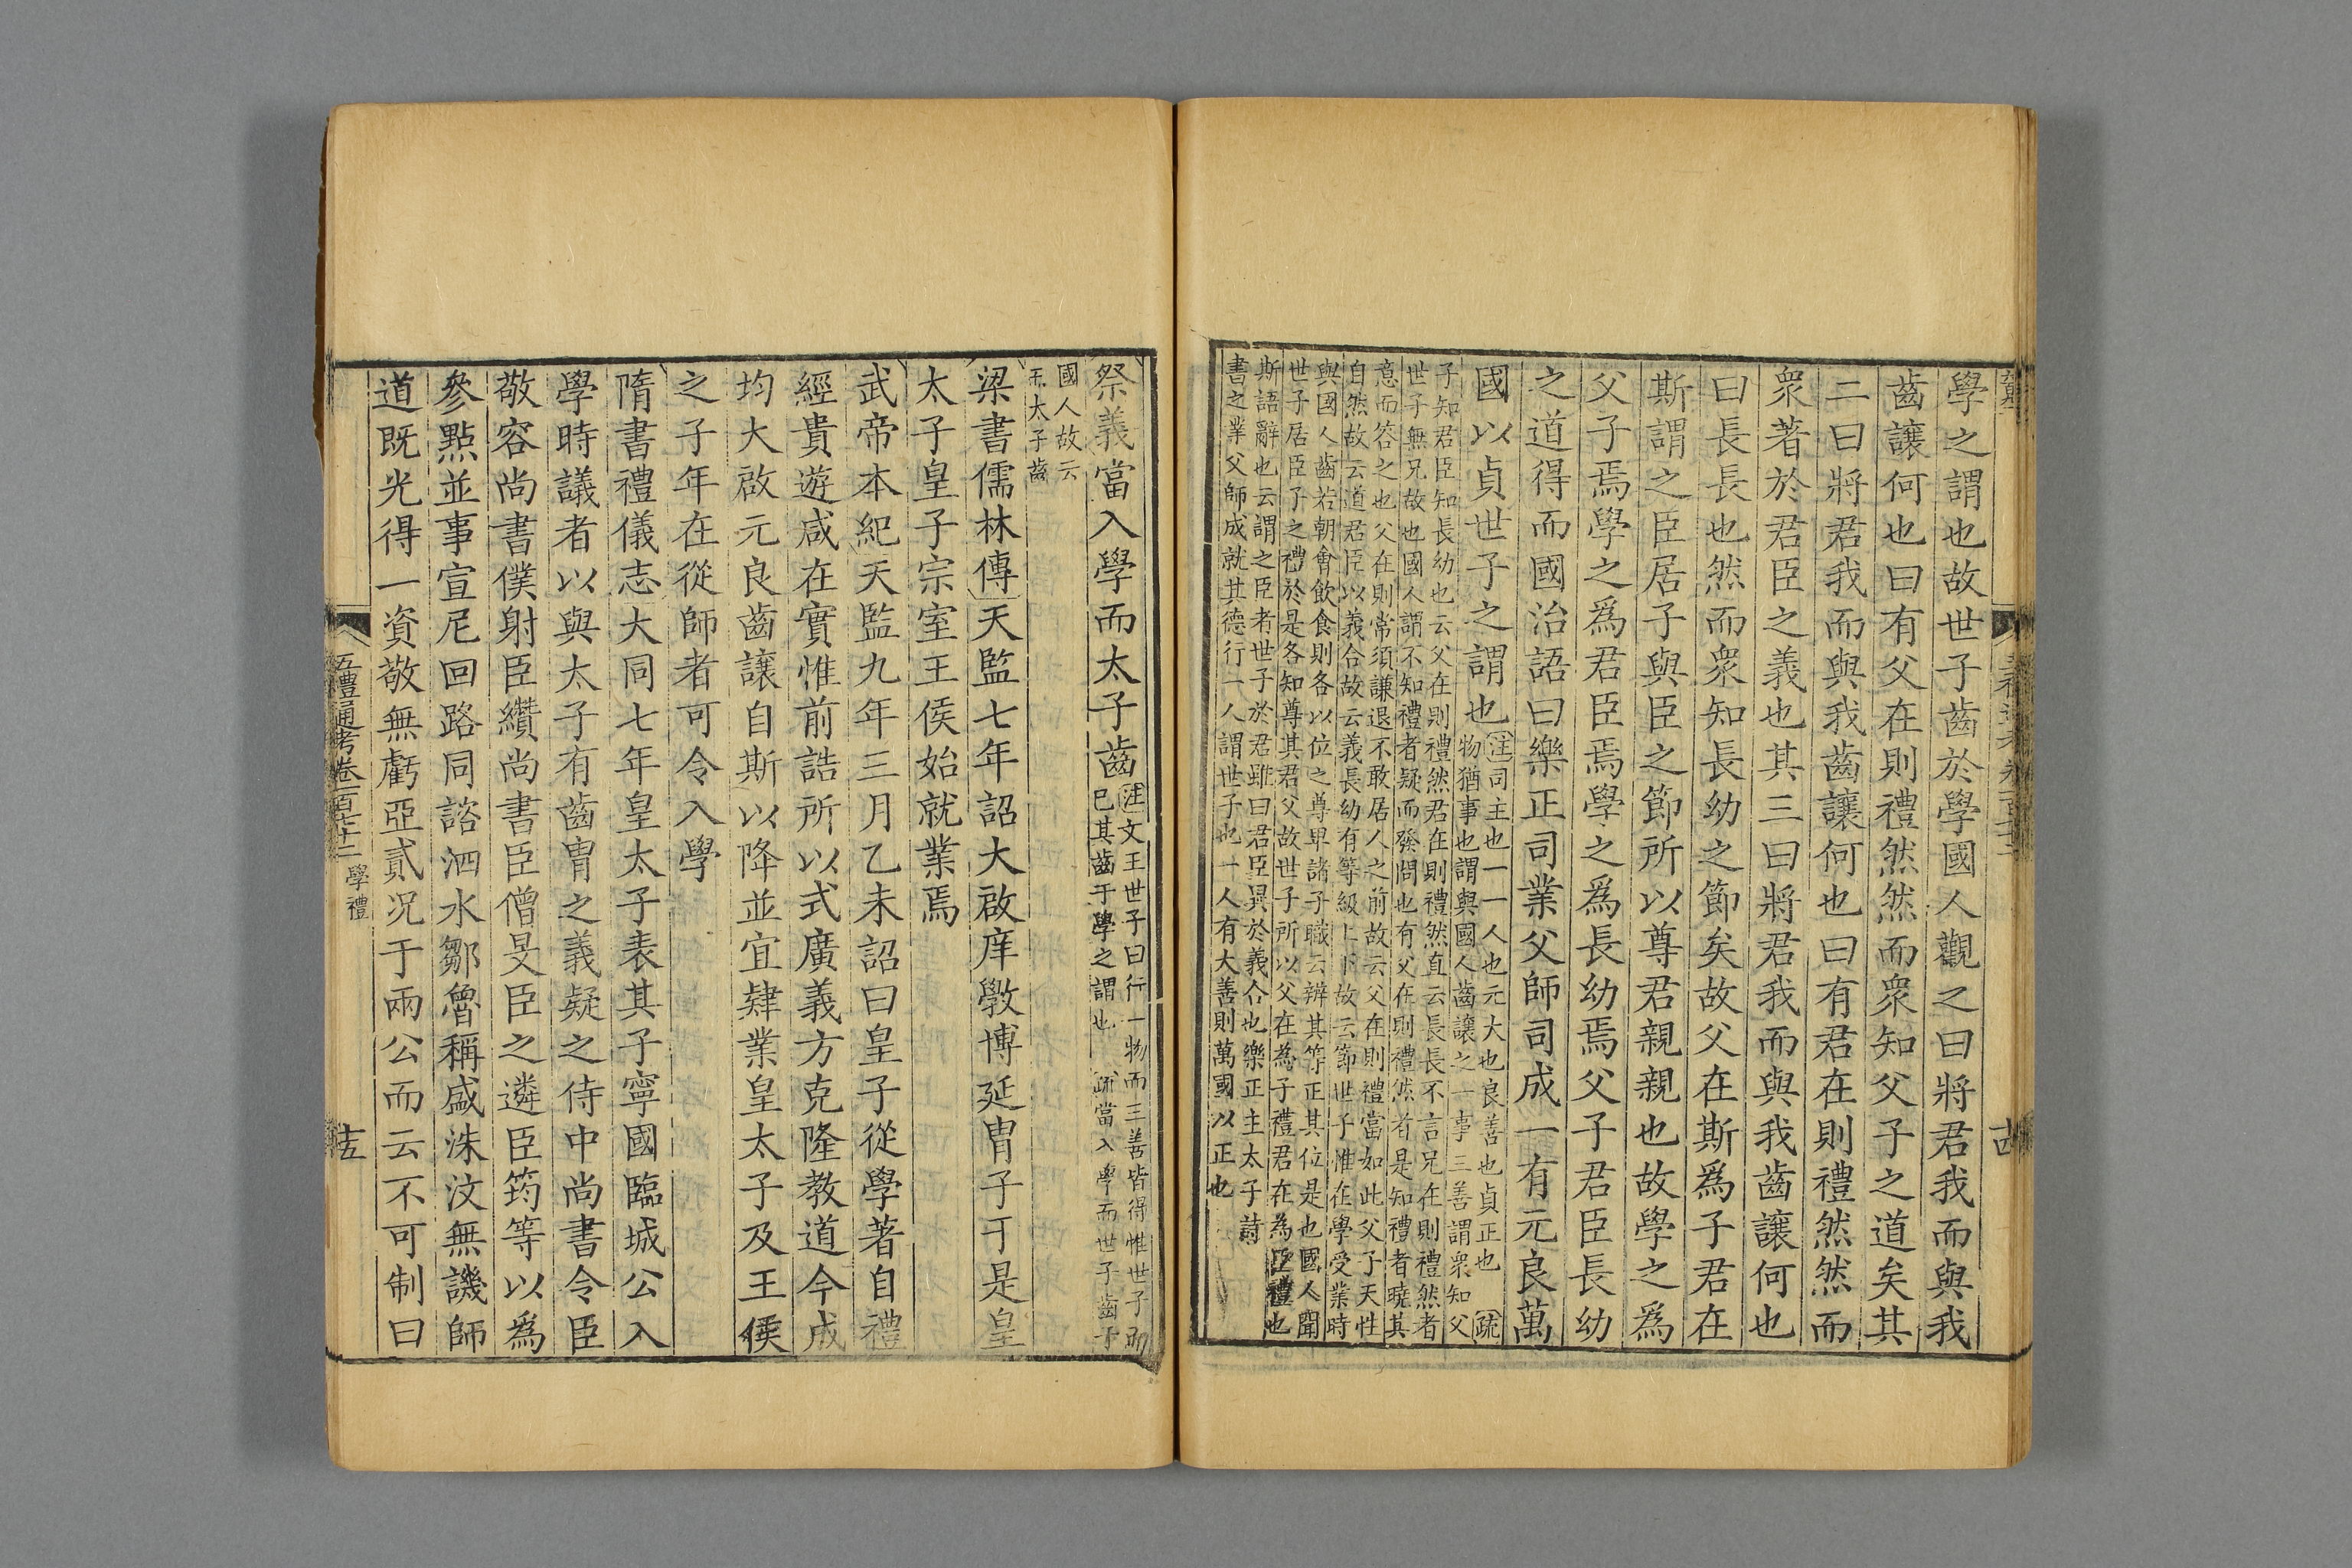 學之謂也故世子齒於學國人觀之曰將君我而與我
齒讓何也曰有父在則禮然然而衆知父子之道矣其
二曰將君我而與我齒讓何也曰有君在則禮然然而
衆著於君臣之義也其三曰將君我而與我齒讓何也
曰長長也然而衆知長幼之節矣故父在斯爲子君在
斯謂之臣居子與臣之節所以尊君親親也故學之爲
父子焉學之爲君臣焉學之爲長幼焉父子君臣長幼
之道得而國治語曰樂正司業父師司成一有元良萬
國以貞世子之謂也
注司主也一一人也元大也良善也貞正也 疏
物猶事也謂與國人齒讓之一事三善謂衆知父
子知君臣知長幼也云父在則禮然君在則禮然直云長長不言兄在則禮然者
世子無兄故也國人謂不知禮者疑而發問也有父在則禮然者是知禮者曉其
意而答之也父在則常須謙退不敢居人之前故云父在則禮當如此父子天性
自然故云道君臣以義合故云義長幼有等級上下故云節世子惟在學受業時
與國人齒若朝會飲食則各以位之尊卑諸子職云辨其等正其位是也國人聞
世子居臣子之禮於是各知尊其君父故世子所以父在為子禮君在為臣禮也
斯語辭也云謂之臣者世子於君雖曰君臣異於義合也樂正主太子詩
書之業父師成就其德行一人謂世子也一人有大善則萬國以正也
祭義當入學而太子齒
注文王世子曰行一物而三善皆得惟世子而
已其齒于學之謂也 疏當入學而世子齒于
國人故云
而太子齒
梁書儒林傳天監七年詔大啟庠斆博延胄子于是皇
太子皇子宗室王侯始就業焉
武帝本紀天監九年三月乙未詔曰皇子從學著自禮
經貴遊咸在實惟前誥所以式廣義方克隆教道今成
均大啟元良齒讓自斯以降並宜肄業皇太子及王侯
之子年在從師者可令入學
隋書禮儀志大同七年皇太子表其子寧國臨城公入
學時議者以與太子有齒胄之義疑之侍中尚書令臣
敬容尚書僕射臣纘尚書臣僧旻臣之遴臣筠等以為
參點並事宣尼回路同諮泗水鄒魯稱盛洙汶無譏師
道既光得一資敬無虧亞貳況于兩公而云不可制曰
五禮通考卷一百七十二 學禮
十五